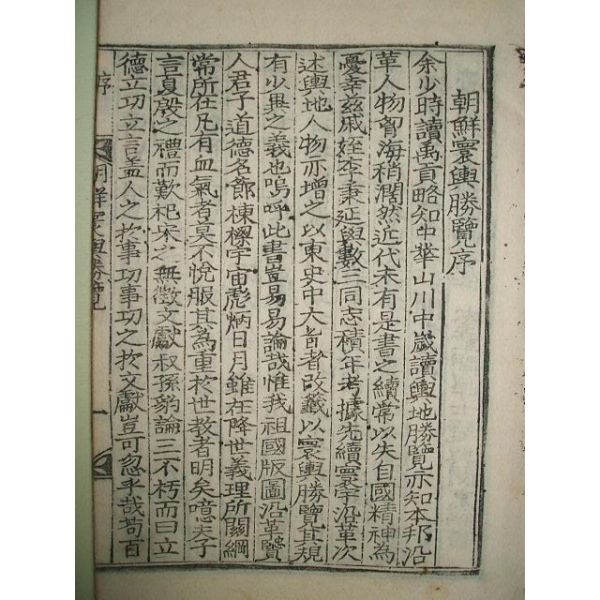 朝鮮寰輿勝覽序
余少時讀禹貢略知中華山川中歲讀輿地勝覽亦知本邦沿
革人物智海稍濶然近代未有是書之續常以失自國精神為
憂幸玆戚姪李秉延與數三同志積年考據先續寰宇沿革次
述輿地人物亦增之以東史中大旨者改籤以寰輿勝覽其規
有少異之義也嗚呼此書豈易易論哉惟我祖國版圖沿革賢
人君子道德名節棟樑宇宙彪炳日月雖在降世義理所關綱
常所在凡有血氣者莫不悅服其為重於世教者明矣噫夫子
言夏殷之禮而歎杞宋之無徵文獻叔孫豹論三不朽而曰立
德立功立言盖人之於事功事功之於文獻豈可忽乎哉苟百
序 朝鮮寰輿勝覽 一